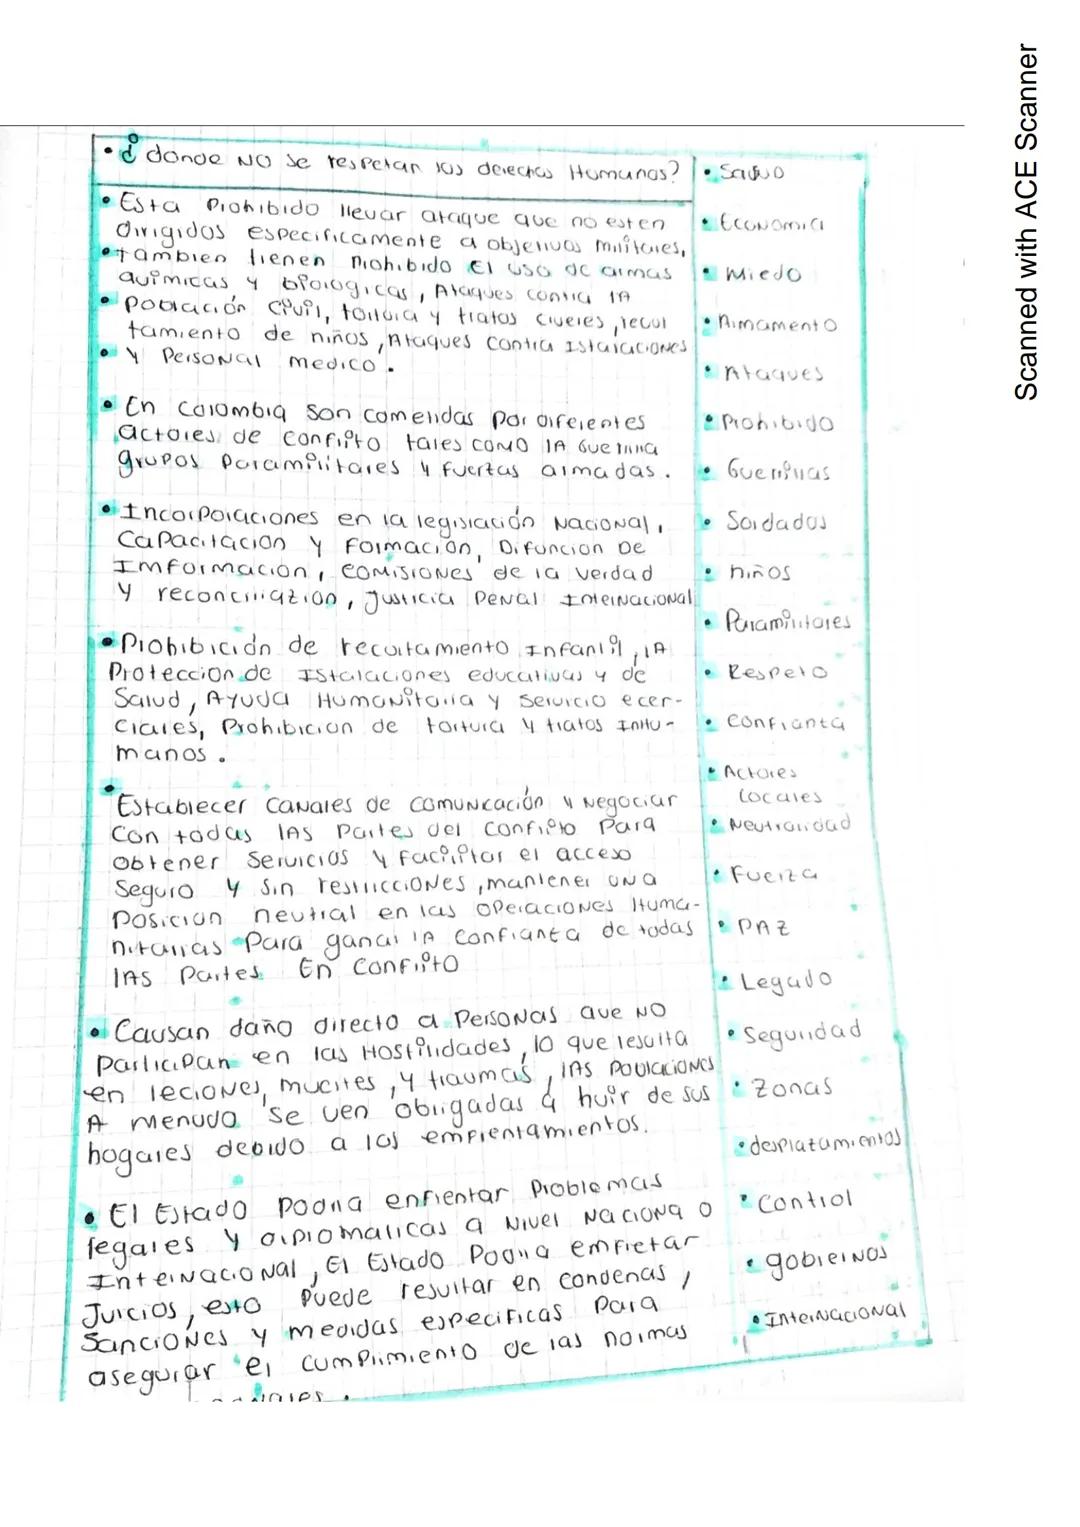 • ¿donde NO se respetan los derechos Humanos?
• Esta Prohibido llevar ataque que no esten
dirigidos especificamente a objetivos militares,
• tambien tienen prohibido El uso de armas
quimicas y biologicas, Ataques contra lA
• población Civil, tortura y tratos crueles, reclu
tamiento de niños, Ataques contra Istalaciones
• y Personal medico.
• En colombia son cometidas por diferentes
actores de conflito tales como lA Guerrilla
grupos Paramilitares y fuerzas armadas.
• Incorporaciones en la legislación Nacional,
Capacitacion y Formación, Difuncion De
Imformacion, comisiones de la verdad
y reconciliazion, justicia Penal Internacional
• Prohibición de reclutamiento Infantil, lA
Proteccion de Istalaciones educativas y de
Salud, Ayuda Humanitaria y servicio ecen-
ciales, Prohibicion de tortura y tratos Inhu-
manos.
•
Establecer canales de comunicación y Negociar
Con todas lAs Partes del conflito Para
obtener servicios y facilitar el acceso
Seguro y sin restricciones, mantener una
posicion neutral en las operaciones Huma-
nitarias Para ganar lA confianza de todas
lAs Partes En conflito
• Causan daño directo a Personas que NO
participan en las Hostilidades, lo que resulta
en leciones, muertes, y traumas, lAs Poblaciones
A menudo se ven obligadas a huir de sus
hogares debido a los emfrentamientos.
• El Estado podria enfrentar Problemas
legales y diplomaticas a Nivel Naciona o
Internacional, El Estado Podria emfretar
Juicios, esto Puede resultar en condenas,
Sanciones y medidas especificas Para
asegurar el cumplimiento de las normas
• Salvo
• Economica
• Miedo
• Armamento
• Ataques
• Prohibido
• Guerrillas
• Soldados
• niños
• Paramilitares
• Respeto
• Confianza
• Actores
locales
• Neutralidad
• Fuerza
• PAZ
• Legado
• Seguridad
• Zonas
• desplazamientos
• Control
• gobiernos
• Internacional
Scanned with ACE Scanner